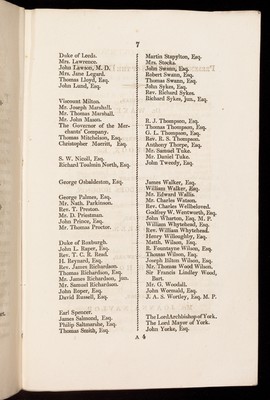 7
Duke of Leeds.
Mrs. Lawrence.
John Lawson, M. D.
Mrs. Jane Legard.
Thomas Lloyd, Esq.
John Lund, Esq.
Viscount Milton.
Mr. Joseph Marshall.
Mr. Thomas Marshall.
Mr. John Mason.
The Governor of the Mer-
chants' Company.
Thomas Mitchelson, Esq.
Christopher Marritt, Esq
S. W. Nicoll, Esq.
Richard Toulmin North, Esq.
George Osbaldeston, Esq.
George Palmes, Esq.
Mr. Nath. Parkinson.
Rev. T. Preston.
Mr. D. Priestman.
John Prince, Esq.
Mr. Thomas Proctor.
Duke of Roxburgh.
John L. Raper, Esq.
Rev. T. C. R. Read.
H. Reynard, Esq.
Rev. James Richardson.
Thomas Richardson, Esq.
Mr. James Richardson, jun.
Mr. Samuel Richardson.
John Roper, Esq.
David Russell, Esq.
Earl Spencer.
James Salmond, Esq.
Philip Saltmarshe, Esq.
Thomas Smith, Esq.
Martin Stapylton, Esq.
Mrs. Stocks.
John Swann, Esq.
Robert Swann, Esq.
Thomas Swann, Esq.
John Sykes, Esq.
Rev. Richard Sykes.
Richard Sykes, jun., Esq.
R. J. Thompson, Esq.
Thomas Thompson, Esq.
G. L. Thompson, Esq.
Rev. R. S. Thompson.
Anthony Thorpe, Esq.
Mr. Samuel Tuke.
Mr. Daniel Tuke.
John Tweedy, Esq.
James Walker, Esq.
William Walker, Esq.
Mr. Edward Wallis.
Mr. Charles Watson.
Rev. Charles Wellbeloved.
Godfrey W. Wentworth, Esq.
John Wharton, Esq. M. P.
William Whytehead, Esq.
Rev. William Whytehead.
Henry Willoughby, Esq.
Matth. Wilson, Esq.
R. Fountayne Wilson, Esq.
Thomas Wilson, Esq.
Joseph Dilton Wilson, Esq.
Mr. Thomas Wood Wilson.
Sir Francis Lindley Wood,
Bart.
Mr. G. Woodall.
John Wormald, Esq.
J. A. S. Wortley, Esq. M. P.
The Lord Archbishop of York.
The Lord Mayor of York.
John Yorke, Esq.
A 4